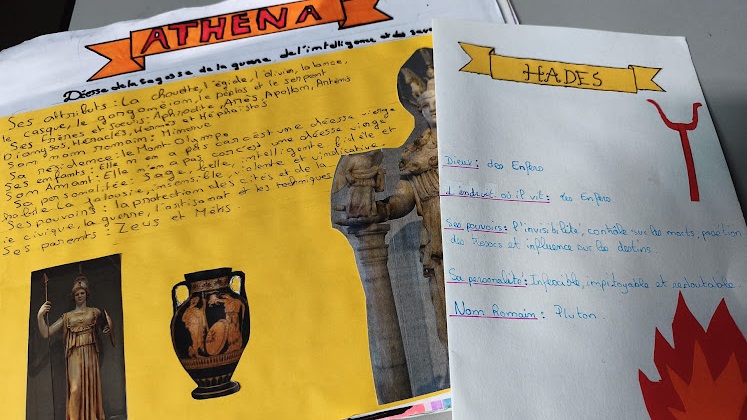 ATHENA
Déesse de la Sagesse de la guerre, de l'intelligence et des
Ses attributs : La chouette, l'égide, l'olivier, la lance,
le casque, le gorgonéion, le péplos et le serpent
Ses frères et soeurs : Aphrodite, Arès, Apollon, Artémis
Dionysos, Héraclès, Hermès et Héphaïstos
Son nom romain : Minerve
Sa résidence : le Mont Olympe
Ses enfants : Elle n'en a pas car c'est une déesse vierge
Son Amant : Elle n'en a pas car c'est une déesse vierge
Sa personalité : Sage, belle, intelligente, fidèle et
noble la jalousie, insensible, violente et vindicative.
Ses pouvoirs : la protection des cités et de la
vie civique, la guerre, l'artisanat et les techniques
Ses parents : Zeus et Métis
HADES
Dieux : des Enfers
L'endroit où il vit : des Enfers
Ses pouvoirs : l'invisibilité, contrôle sur les morts,
des trésors et influence sur les destins
Sa personalité : Inflexible, impitoyable et redoutable
Nom Romain : Pluton